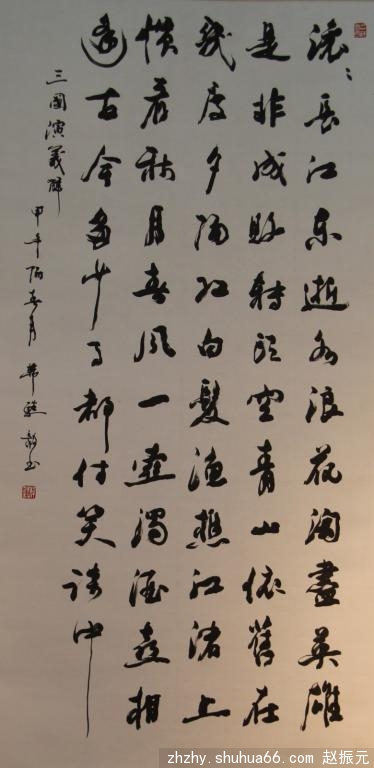 滚〻長江东逝水浪花淘盡英雄
是非成败转头空青山依舊在
几度夕阳红白髮渔樵江渚上
惯看秋月春风一壶浊酒喜相
逢古今多少事都付笑谈中
三國演義辞
甲午阳春月 书
zhzhy.shuhua66.com 赵振元